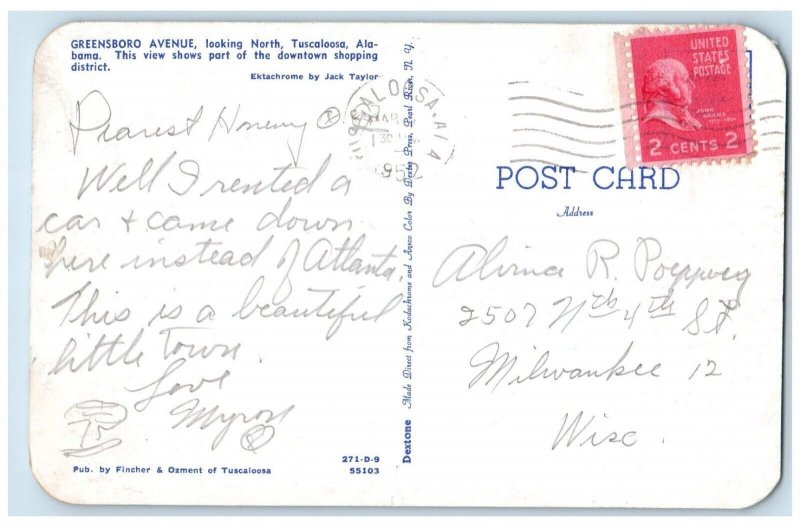 GREENSBORO AVENUE, looking North, Tuscaloosa, Ala-
bama. This view shows part of the downtown shopping
district.
Ektachrome by Jack Taylor
Dearest
Well I rented a
car & came down
here instead of Atlanta.
This is a beautiful
little town.
Love
Myron
Pub. by Fincher & Ozment of Tuscaloosa
271-D-9
55103
Dextone Made Direct from Kodachrome and Ansco Color By Dexter Press, Pearl River, N. Y.
TUSCALOOSA, ALA
UNITED
STATES
POSTAGE
JOHN
ADAMS
2 CENTS 2
POST CARD
Address
Alvina R.
2507 Nth 4th St.
Milwaukee 12
Wisc.